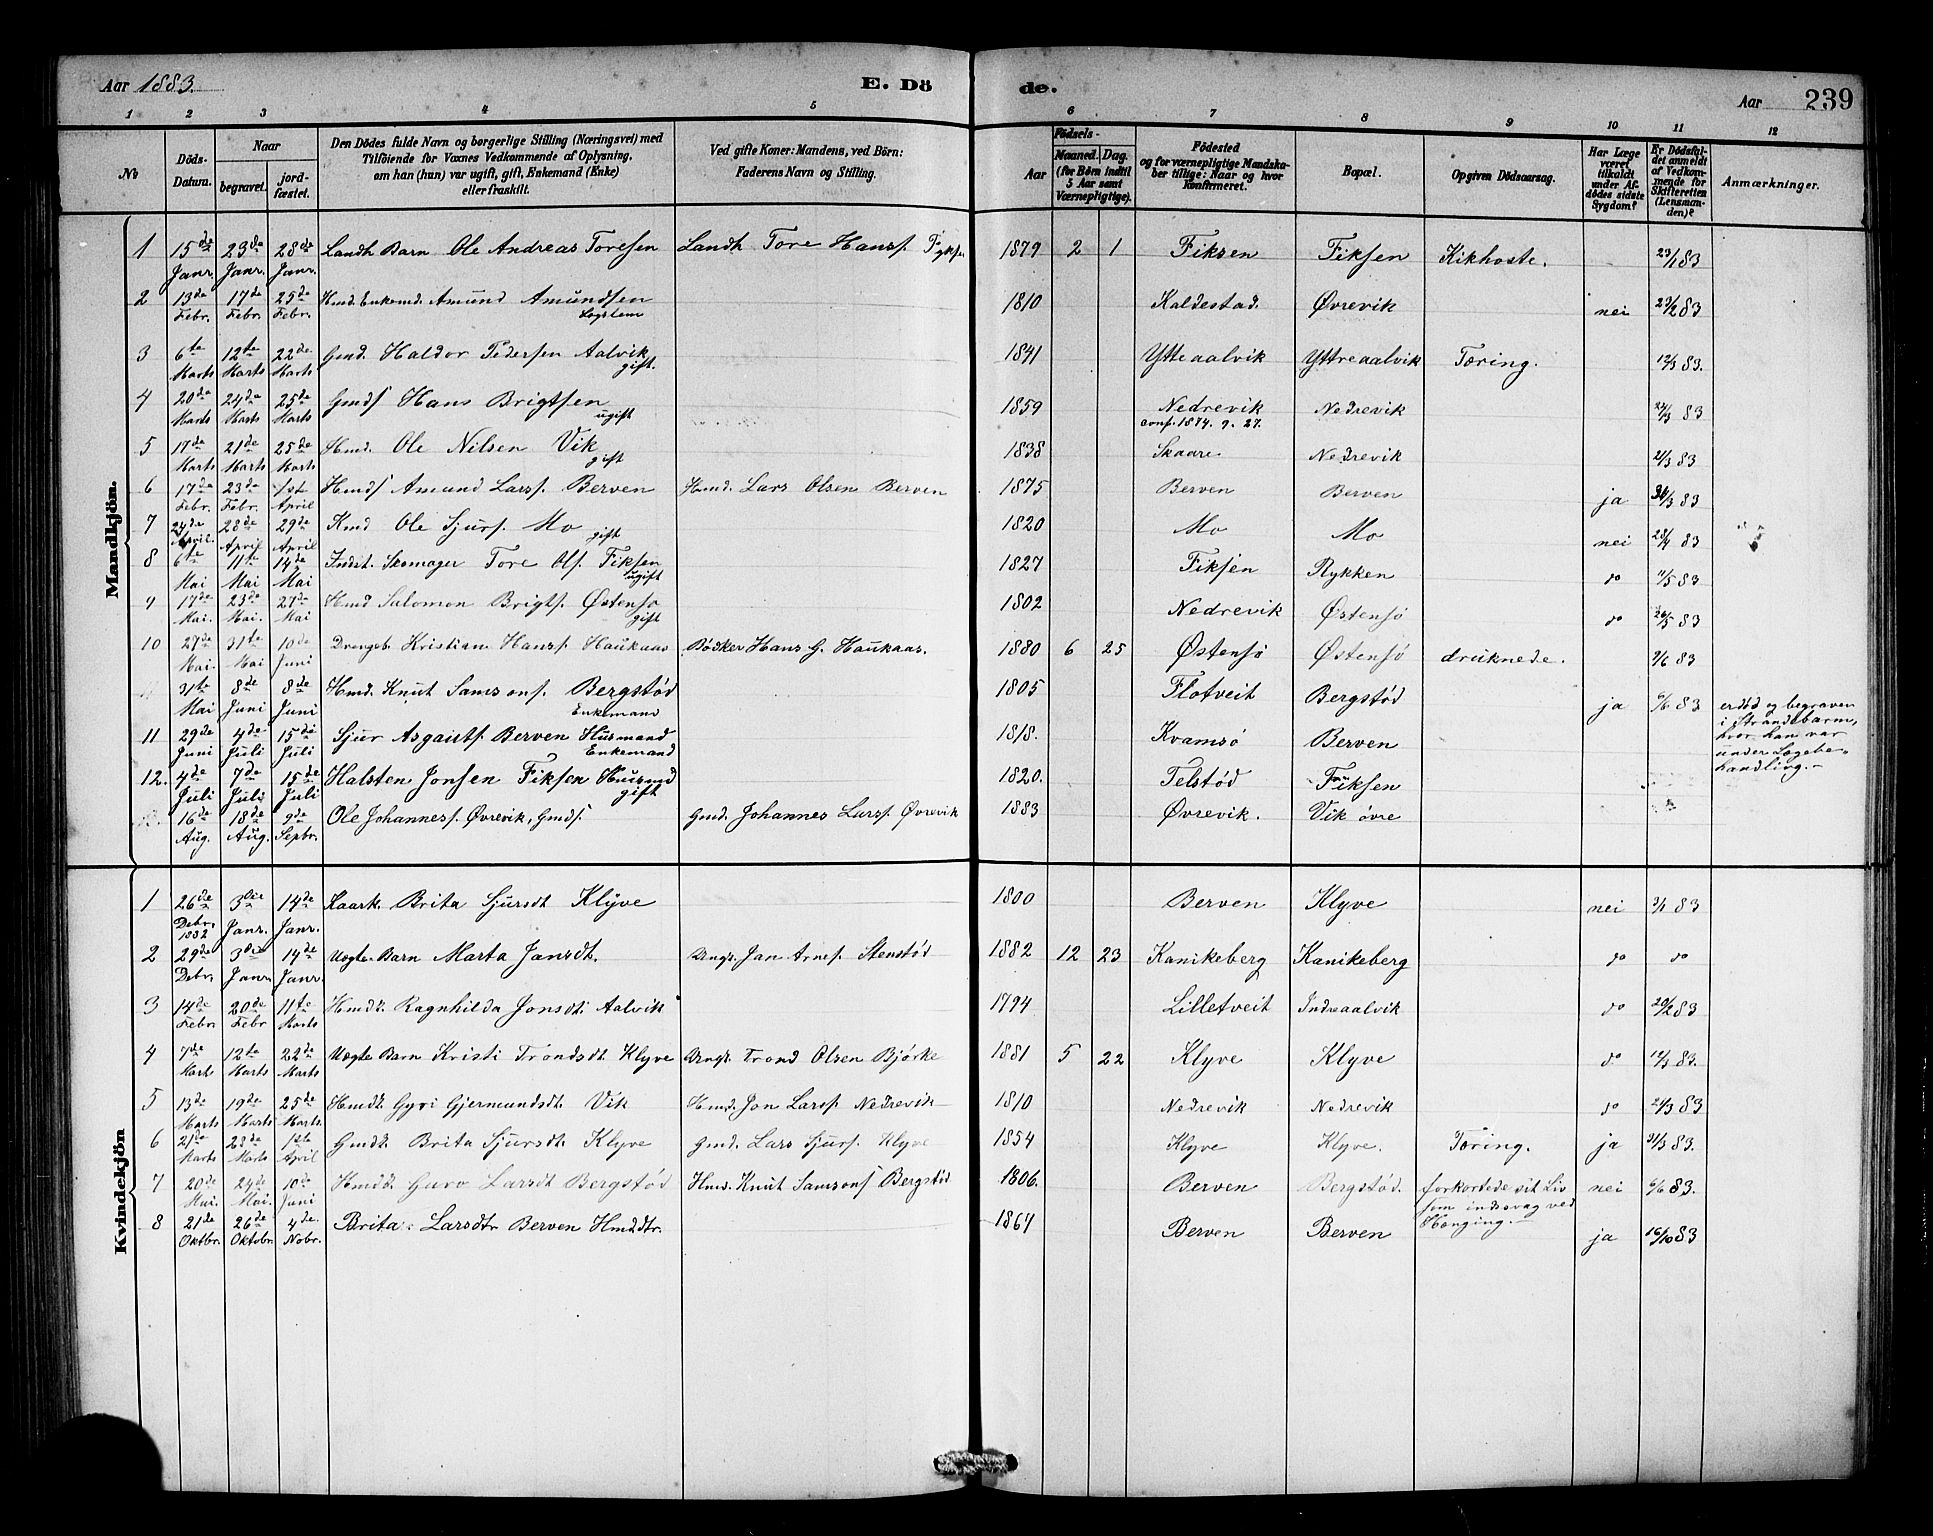 Aar 1883.
E. Dö
de.
Aar
239
1 2 3 4 5 6 7 8 9 10 11 12
No
Döds-Datum.
Naar
begravet.
jord-fæstet.
Den Dödes fulde Navn og borgerlige Stilling (Næringsvei) med
Tilföiende for Voxnes Vedkommende af Oplysning,
om han (hun) var ugift, gift, Enkemand (Enke)
eller fraskilt.
Ved gifte Koner: Mandens, ved Börn:
Faderens Navn og Stilling.
Födsels-
Aar
Maaned. Dag.
(for Börn indtil
5 Aar samt
Værnepligtige).
Födested
og for værnepligtige Mandska-
ber tillige: Naar og hvor
konfirmeret.
Bopæl.
Opgiven Dödsaarsag.
Har Læge
været
tilkaldt
under Af-
dödes sidste
Sygdom?
Er Dödsfal-
det anmeldt
af Vedkom-
mende for
Skifteretten
(Lensman-
den)?
Anmærkninger.
Mandkjön.
1 15de Janr. 23de Janr. 28de Janr. Landh Barn Ole Andreas Toresen Landh Tore Hanss. Fykse 1879 2 1 Fiksen Fiksen Kikhoste. 23/1 83
2 13de Febr. 17de Febr. 25de Febr. Hmd. Enkemd. Amund Amundsen 1810 Kaldestad. Øvrevik nei 23/2 83
3 6te Marts 12te Marts 22de Marts Gmd. Haldor Pedersen Aalvik gift. 1841 Ytteaalvik Yttreaalvik Tæring. 12/3 83.
4 20de Marts 24de Marts 25de Marts Gmds Hans Brigtsen ugift 1859 Nedrevik conf. 1874. 9. 27. Nedrevik 24/3 83
5 17de Marts 21de Marts 25de Marts Hmd. Ole Nilsen Vik gift 1838 Skaare Nedrevik 21/3 83
6 17de Febr. 23de Febr. 1st April Hmds Amund Larss. Berven Hmd. Lars Olsen Berven 1875 Berven Berven ja 83
7 24de April. 28de April 29de April Kmd Ole Sjurs. Mo gift 1820 Mo Mo nei 28/4 83
8 6te Mai 11te Mai 14de Mai Indst. Skomager Tore Ols. Fiksen ugift 1827 Fiksen Rykken do 11/5 83
9 17de Mai. 23de Mai. 27de Mai Hmd Salomon Brigts. Østensø gift 1802 Nedrevik Østensø do 26/5 83
10 27de Mai. 31te Mai 10de Juni Drengeb. Kristian Hanss. Haukaas Bødker Hans G. Haukaas. 1880 6 25 Østensø Østensø druknede. 2/6 83
31te Mai 8de Juni 8de Juni Hmd. Knut Samsons. Bergstød Enkemand 1805 Flotveit Bergstød ja 6/6 83 erdød og begraven
i Strandebarm,
hvor han var
under Lægebe-
handling.-
11 29de Juni 4de Juli 15de Juli Sjur Asgauts. Berven Husmand Enkemand 1818. Kvamsø Berven
12. 4de Juli 7de Juli 15de Juli Halsten Jonsen Fiksen Husmd gift 1820. Telstød Fiksen
16de Aug. 18de Aug. 9de Septbr. Ole Johanness. Øvrevik, Gmds. Gmd. Johannes Larss. Øvrevik 1883 Øvrevik. Vik øvre
Kvindekjön
1 26de Debr. 1882 3die Janr. 14de Janr. Kaark. Brita Sjursdt Klyve 1800 Berven Klyve nei 3/1 83
2 29de Debr. 3die Janr. 14de Janr. Uægte Barn Marta Jansdt. Ungk. Jan Arnes. Stenstød 1882 12 23 Kanikeberg Kanikeberg do do
3 14de Febr. 20de Febr 11te Marts Hmdk. Ragnhilda Jonsdt. Aalvik 1794 Lilletveit Indreaalvik do 20/2 83
4 7de Marts 12te Marts 22de Marts Uægte Barn Kristi Trondsdt. Klyve Ungk. Trond Olsen Bjørke 1881 5 22 Klyve Klyve do 12/3 83.
5 13de Marts 19de Marts 25de Marts. Hmdk. Gyri Gjermundsdt. Vik Hmd. Jon Larss. Nedrevik 1810 Nedrevik Nedrevik do 24/3 83
6 21de Marts 28de Marts 1ste April Gmdt. Brita Sjursdt. Klyve Gmd. Lars Sjurs. Klyve 1854 Klyve Klyve. Tæring. ja 31/3 83.
7 20de Mai. 24de Mai. 10de Juni Hmdk. Guro Larsdt Bergstød Hmd. Knut Samsons Bergstød 1806. Berven Bergstød. forkortede sit Liv
som indsvag ved
Hænging.- nei 6/6 83.
8 21de Oktbr. 26de Oktobr. 4de Nobr. Brita Larsdtr Berven Hmddtr. 1867 Berven Berven ja 83